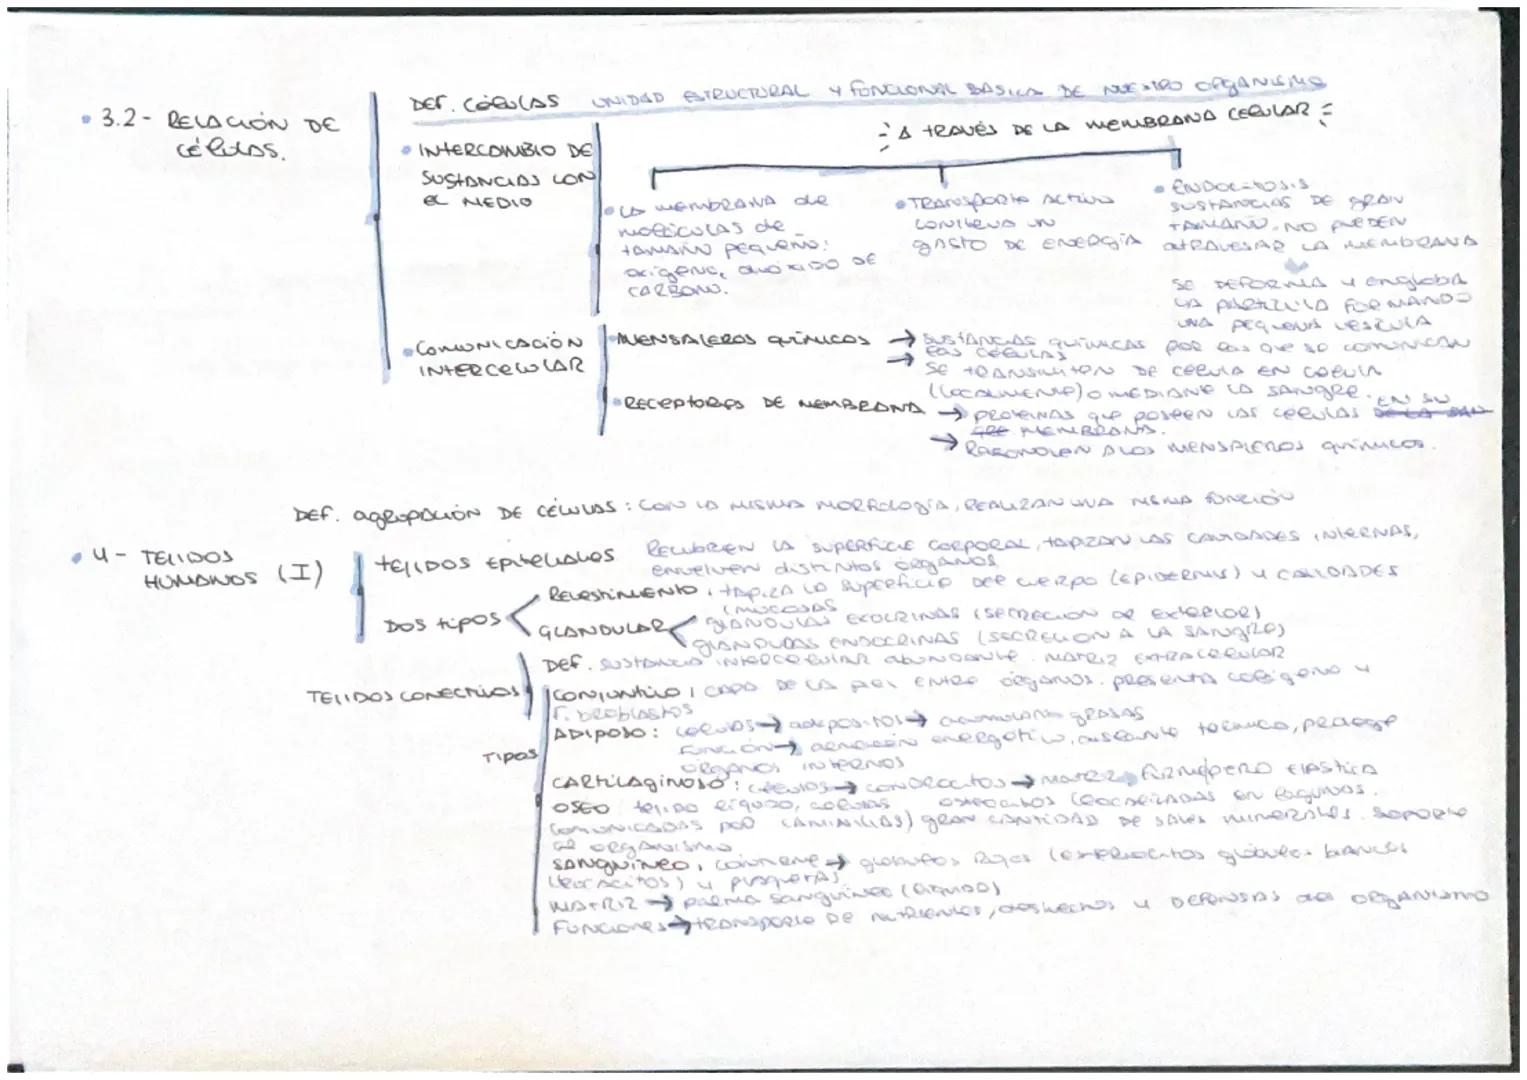 DEF. CÉLULAS UNIDAD ESTRUCTURAL Y FUNCIONAL BÁSICA DE NUESTRO ORGANISMO
• 3.2- RELACIÓN DE
CÉLULAS.
A TRAVÉS DE LA MEMBRANA CELULAR
• INTERCAMBIO DE
SUSTANCIAS CON
EL MEDIO
• LA MEMBRANA de
moléculas de
tamaño pequeño:
oxígeno, dióxido de
CARBONO.
• TRANSPORTE ACTIVO
CONLLEVA UN
GASTO DE ENERGÍA
• ENDOCITOSIS
SUSTANCIAS DE GRAN
TAMAÑO, NO PUEDEN
ATRAVESAR LA MEMBRANA
SE DEFORMA Y engloba
LA PARTÍCULA FORMANDO
UNA PEQUEÑA VESÍCULA
• COMUNICACIÓN
INTERCELULAR
• MENSAJEROS QUÍMICOS → SUSTANCIAS QUÍMICAS POR LAS QUE SE COMUNICAN
LAS CÉLULAS
→ SE TRANSMITEN DE CÉLULA EN CÉLULA
(LOCALMENTE) O MEDIANTE LA SANGRE.
• RECEPTORES DE MEMBRANA → PROTEÍNAS QUE POSEEN LAS CÉLULAS EN SU
MEMBRANA.
→ RECONOCEN A LOS MENSAJEROS QUÍMICOS.
DEF. AGRUPACIÓN DE CÉLULAS: CON LA MISMA MORFOLOGÍA, REALIZAN UNA MISMA FUNCIÓN
• 4- TEJIDOS
HUMANOS (I)
TEJIDOS EPITELIALES RECUBREN LA SUPERFICIE CORPORAL, TAPIZAN LAS CAVIDADES INTERNAS,
ENVUELVEN DISTINTOS ÓRGANOS
DOS TIPOS
REVESTIMIENTO, TAPIZA LA SUPERFICIE DEL CUERPO (EPIDERMIS) Y CAVIDADES
(MUCOSAS
GLANDULAR GLÁNDULAS EXOCRINAS (SECRECIÓN AL EXTERIOR)
GLÁNDULAS ENDOCRINAS (SECRECIÓN A LA SANGRE)
TEJIDOS CONECTIVOS
DEF. SUSTANCIA INTERCELULAR ABUNDANTE MATRIZ EXTRACELULAR
TIPOS
CONJUNTIVO, CAPA DE LA PIEL ENTRE ÓRGANOS. PRESENTA COLÁGENO Y
FIBROBLASTOS
ADIPOSO: CÉLULAS → ADIPOCITOS → ACUMULAN GRASAS
FUNCIÓN → ALMACÉN ENERGÉTICO, AISLANTE TÉRMICO, PROTEGE
ÓRGANOS INTERNOS
CARTILAGINOSO: CÉLULAS → CONDROCITOS → MATRIZ FIRME PERO ELÁSTICA
OSEO TEJIDO RÍGIDO, CÉLULAS OSTEOCITOS (LOCALIZADAS EN LAGUNAS.
COMUNICADAS POR CANALILLAS) GRAN CANTIDAD DE SALES MINERALES. SOPORTE
AL ORGANISMO
SANGUÍNEO, CONTIENE → GLÓBULOS ROJOS BLANCOS
LEUCOCITOS) Y PLAQUETAS
MATRIZ → SANGUÍNEO (LÍQUIDO)
FUNCIONES → TRANSPORTE DE NUTRIENTES, DESHECHOS Y DEFENSAS DEL ORGANISMO